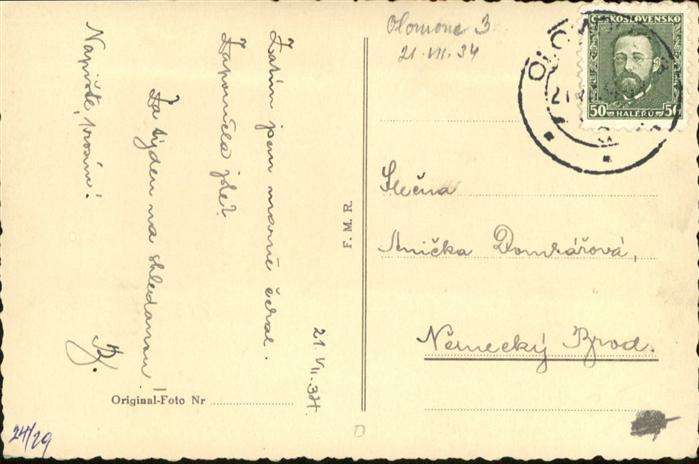 Zatím jsem marně čekal.
Zapomněla jste?
Za týden na shledanou!
Napište, prosím!
B.
21. VII. 34.
Original-Foto Nr
24/29
F. M. R.
Olomouc 3
21. VII. 34
OLOM
21
ČESKOSLOVENSKO
50 HALÉŘŮ 50
Slečna
Anička Domkářová,
Německý Brod.